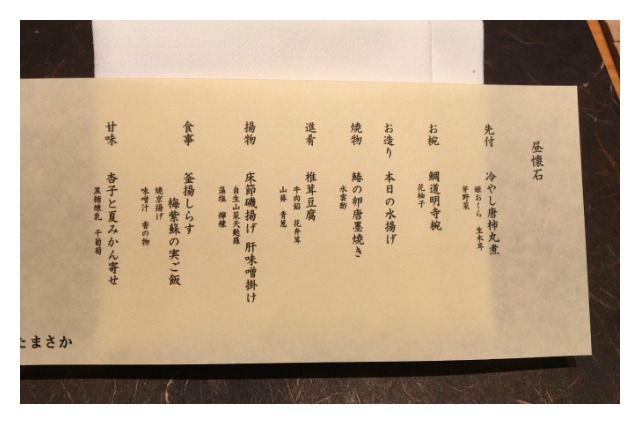 昼懐石
先付 冷やし唐柿丸煮
姫おくら 生木耳
芽野菜
お椀 鯛道明寺椀
花柚子
お造り 本日の水揚げ
焼物 鰆の卵唐墨焼き
水雲酢
進肴 椎茸豆腐
牛肉餡 花弁茸
山椿 青葱
揚物 床節磯揚げ 肝味噌掛け
自生山菜天麩羅
藻塩 檸檬
食事 釜揚しらす
梅紫蘇の実ご飯
焼京揚げ
味噌汁 香の物
甘味 杏子と夏みかん寄せ
黒糖練乳 干葡萄
たまさか